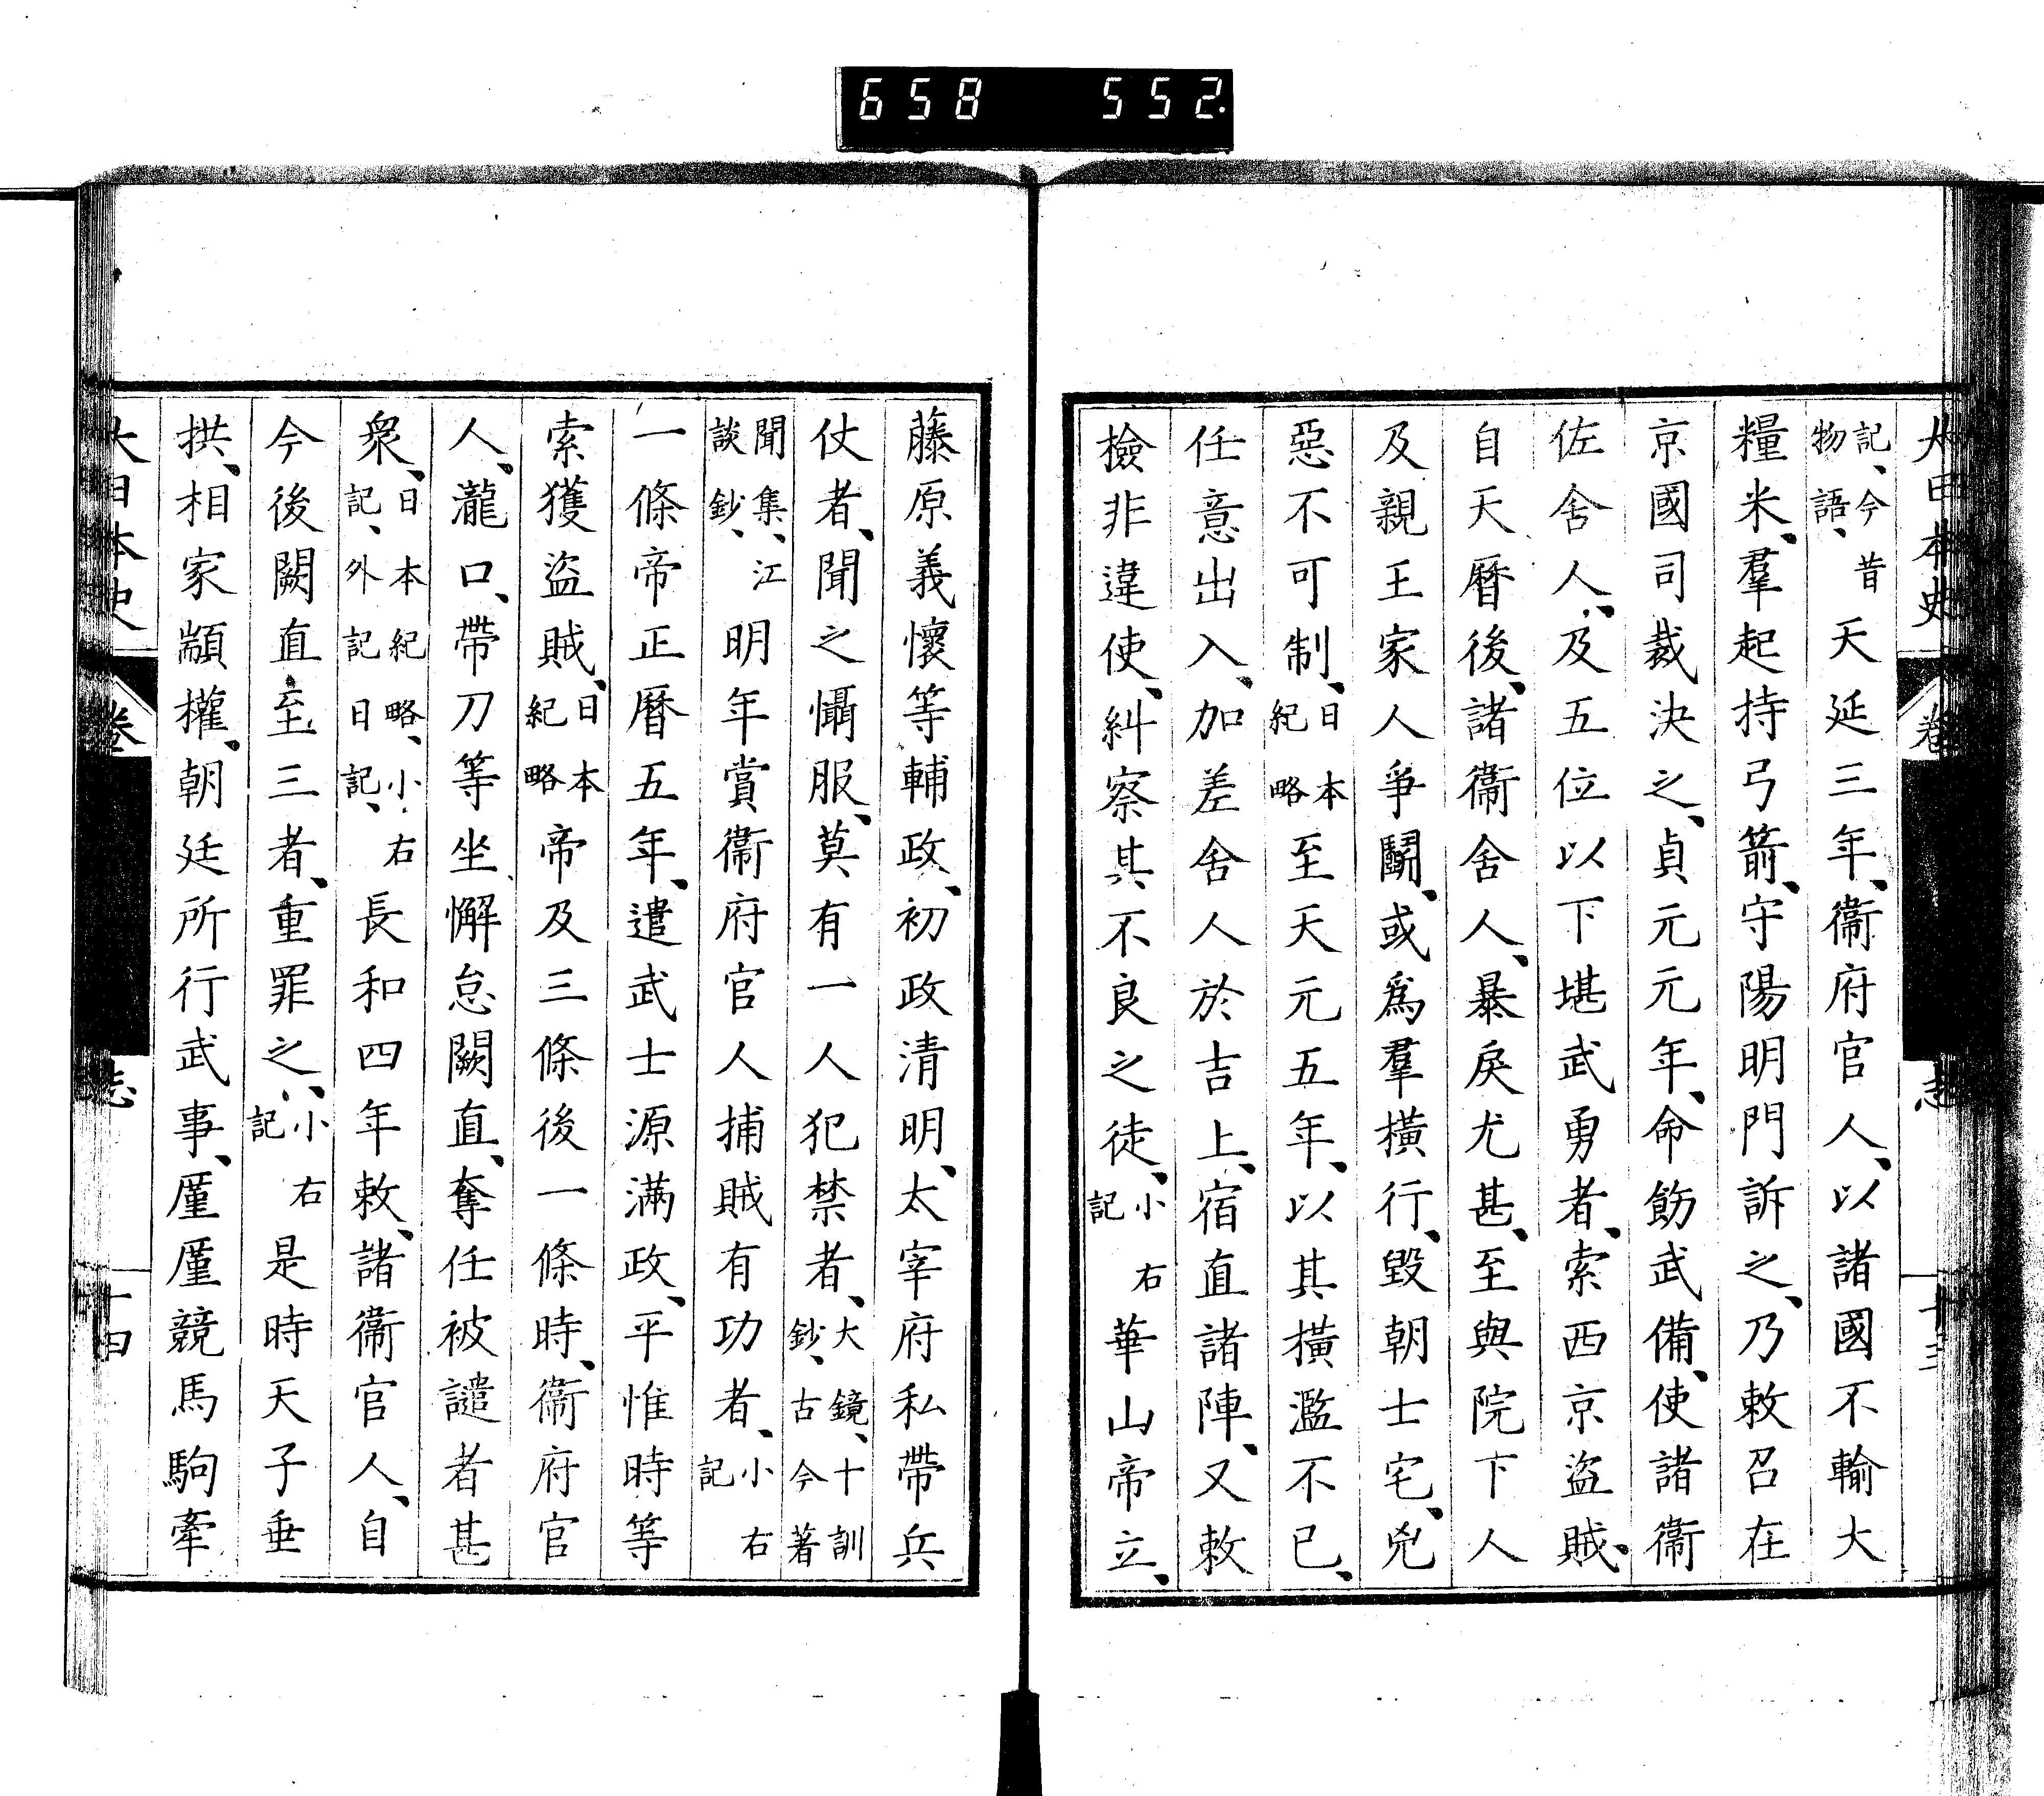 658 552.
大日本史 卷 志 十三
記、今昔物語、天延三年、衞府官人、以諸國不輸大
糧米、羣起持弓箭、守陽明門訴之、乃敕召在
京國司裁決之、貞元元年、命飭武備、使諸衞
佐舍人、及五位以下堪武勇者、索西京盜賊、
自天曆後、諸衞舍人、暴戾尤甚、至與院下人
及親王家人爭鬭、或爲羣橫行、毀朝士宅、兇
惡不可制、日本紀略至天元五年、以其橫濫不已、
任意出入、加差舍人於吉上、宿直諸陣、又敕
檢非違使、糾察其不良之徒、小右記華山帝立、
藤原義懷等輔政、初政清明、太宰府私帶兵
仗者、聞之懾服、莫有一人犯禁者、大鏡、十訓鈔、古今著
聞集、江談鈔、明年賞衞府官人捕賊有功者、小右記
一條帝正曆五年、遣武士源滿政、平惟時等
索獲盜賊、日本紀略帝及三條後一條時、衞府官
人、瀧口、帶刀等坐懈怠闕直、奪任被譴者甚
衆、日本紀略、小右記、外記日記、長和四年敕、諸衞官人、自
今後闕直至三者、重罪之、小右記是時天子垂
拱、相家顓權、朝廷所行武事、厪厪競馬駒牽
大日本史 卷 志 十四